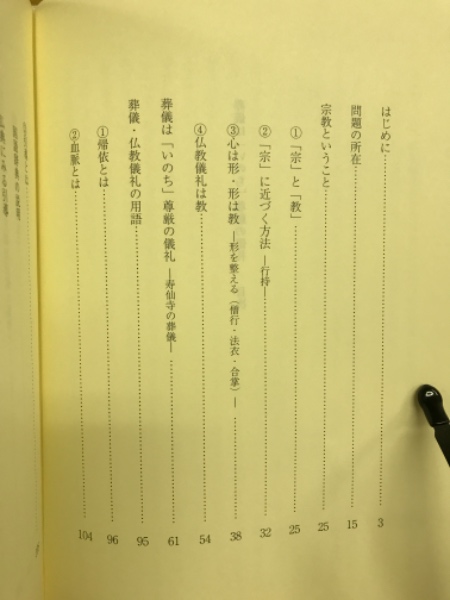 はじめに……3
問題の所在……15
宗教ということ……25
①「宗」と「教」……25
②「宗」に近づく方法 ―行持―……32
③心は形・形は教 ―形を整える(僧行・法衣・合掌)―……38
④仏教儀礼は教……54
葬儀は「いのち」尊厳の儀礼 ―寿仙寺の葬儀―……61
葬儀・仏教儀礼の用語……95
①帰依とは……96
②血脈とは……104